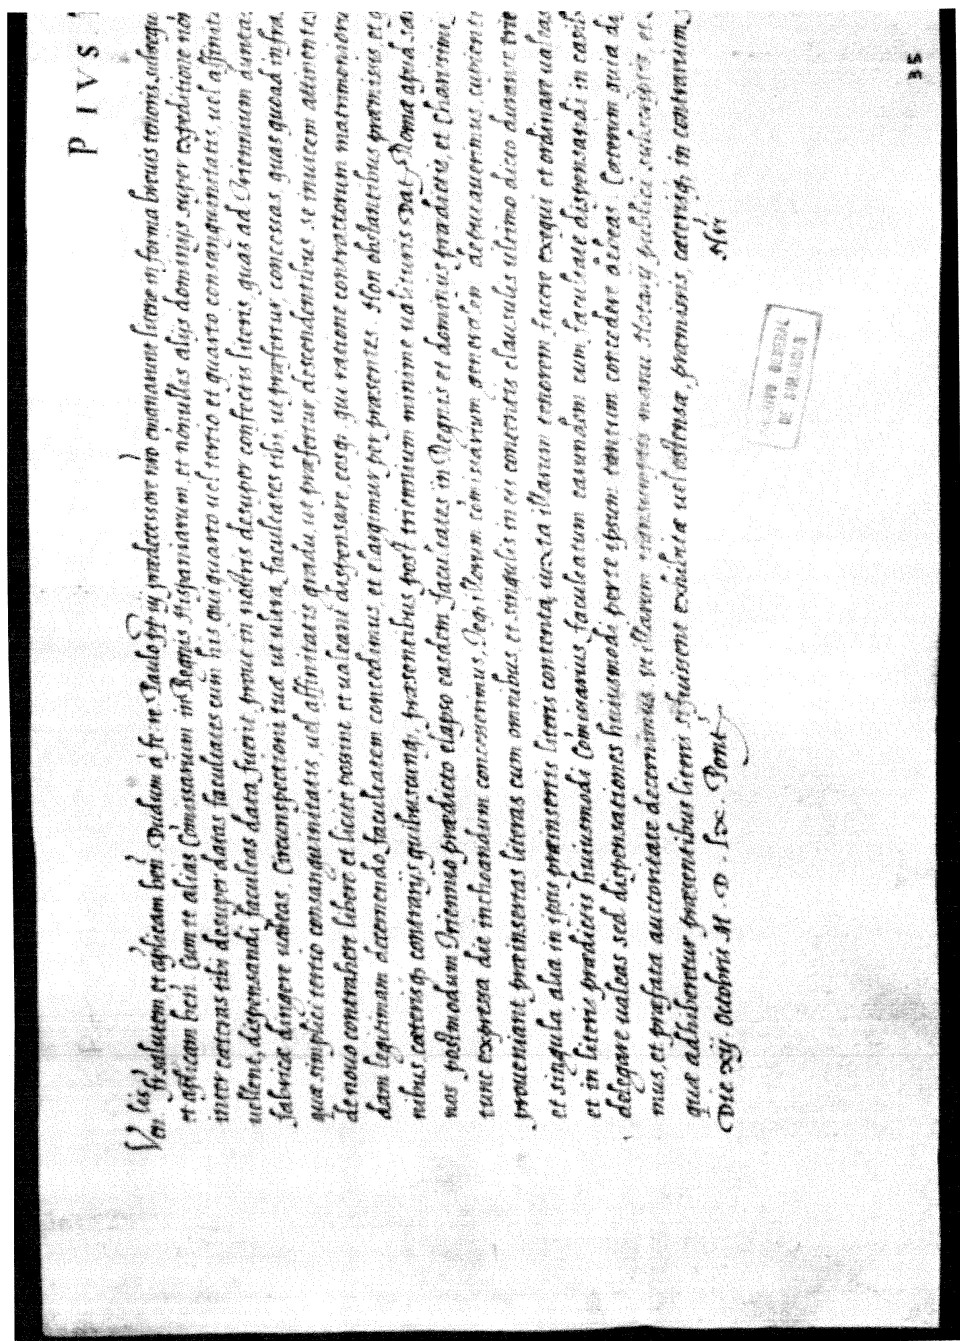 PIVS
Ven. fr̄ salutem et aplicam ben̄. Dudum a fe. re. Paulo pp. iiij prædecessore nr̄o emanarunt literæ in forma breuis tenoris subseq
et aplicam ben̄. Cum te alias Comissarium in Regnis Hispaniarum, et nonnullis alijs dominijs super expeditione no
inter cætteras tibi desuper datas facultates cum his qui quarto uel tertio et quarto consanguinitatis, uel affinita
uellent, dispensandi facultas data fuerit prout in nostris desuper confectis literis, quas ad Triennium dunta
fabricæ dirigere uideas. Circumspectioni tuæ ut ultra facultates tibi ut præfertur concessas, quas quoad infra
qua simplici tertio consanguinitatis uel affinitatis gradu, ut præfertur descendentibus se inuicem attinentes
de nouo contrahere libere et licite possint et ualeant dispensare eosq. qui ratione contractorum matrimonioru
dam legitimam decernendo facultatem concedimus, et elargimur per præsentes. Non obstantibus præmissis et
nibus cæterisq. contrarijs quibuscunq., præsentibus post triennium minime ualituris. Dat. Romæ apud san
nos postmodum Triennio prædicto elapso easdem facultates in Regnis et dominijs prædictis, et Ghanrime
tunc expressa die inchoandum concesserimus, Regi illorum comissarium generalem deputauerimus, cupient
proueniant præinsertas literas cum omnibus, et singulis in eis contentis clausulis ultimo dicto durante trie
et singula alia in ipsis præinsertis literis contenta, iuxta illarum tenorem facere exequi et ordinare ualeas
et in literis prædictis huiusmodi Comissarius facultatum earundem cum facultate dispensandi in casib
delegare ualeas sed dispensationes huiusmodi per te ipsum tantum concedere debeas. Cæterum quia di
mus, et præfata auctoritate decernimus ut illarum transumptis manu Notarij publici subscriptis, et
quæ adhiberetur præsentibus literis si fuissent exhibitæ uel ostensæ, præmissis, cæterisq. in contrarium
Die xij Octobris M. D. Lix. Pont.
35
ARCHIVO GENERAL
DE SIMANCAS